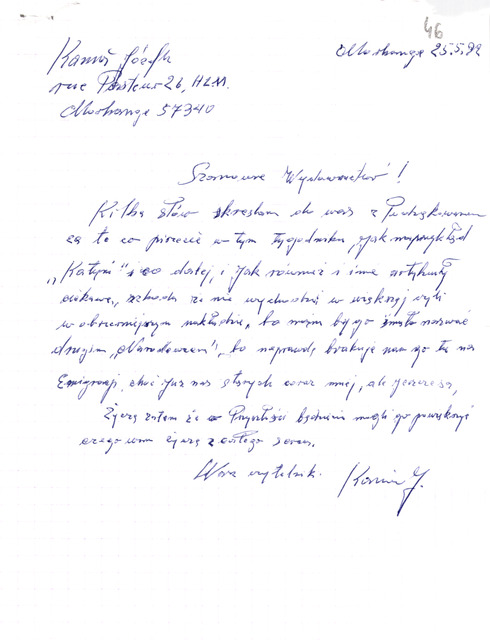 46
Morhange 25.5.92
Kamuś Józef
rue Pasteur 26, HLM.
Morhange 57340
Szanowne Wydawnictwo!
Kilka słów skreślam do was z Podziękowaniem
za to co piszecie w tym tygodniku, jak naprzykład
„Katyń" i co dalej, i jak również i inne artykuły
ciekawe, szkoda że nie wychodzi w większej
w nakładzie, bo można by go śmiało nazwać
drugim „Narodowcem", bo naprawdę brakuje nam go tu na
Emigracji, choć już nas starych coraz mniej, ale jeszcze są,
Życzę zatem że w Przyszłości będziecie mogli go powiększyć
czego wam życzę z całego serca.
Wasz czytelnik.